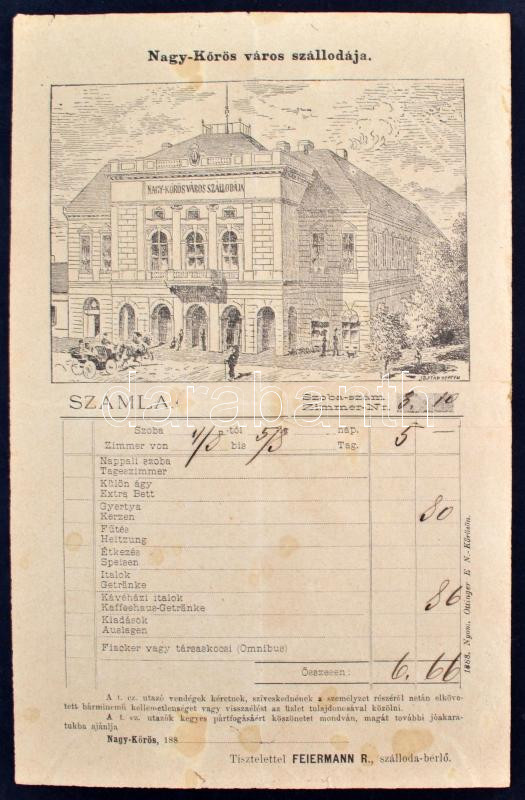 Nagy-Kőrös város szállodája.
NAGY-KŐRÖS VÁROS SZÁLLODÁJA
SZÁMLA.
Szoba-szám
Zimmer-Nr. 8. 10
Szoba -tól nap.
Zimmer von 1/8 bis 5/8 Tag. 5 —
Nappali szoba
Tageszimmer
Külön ágy
Extra Bett
Gyertya
Kerzen 80
Fűtés
Heitzung
Étkezés
Speisen
Italok
Getränke
Kávéházi italok
Kaffeehaus-Getränke 86
Kiadások
Auslagen
Fiacker vagy társaskocsi (Omnibus)
Összesen: 6. 66
1888. Nyom. Ottinger E N.-Kőrösön.
A t. cz. utazó vendégek kéretnek, szíveskednének a személyzet részéről netán elköve-
tett bárminemű kellemetlenséget vagy visszaélést az üzlet tulajdonosával közölni.
A t. cz. utazók kegyes pártfogásáért köszönetet mondván, magát további jóakara-
tukba ajánlja
Nagy-Kőrös, 188
Tisztelettel FEIERMANN R., szálloda-bérlő.
darabanth.com